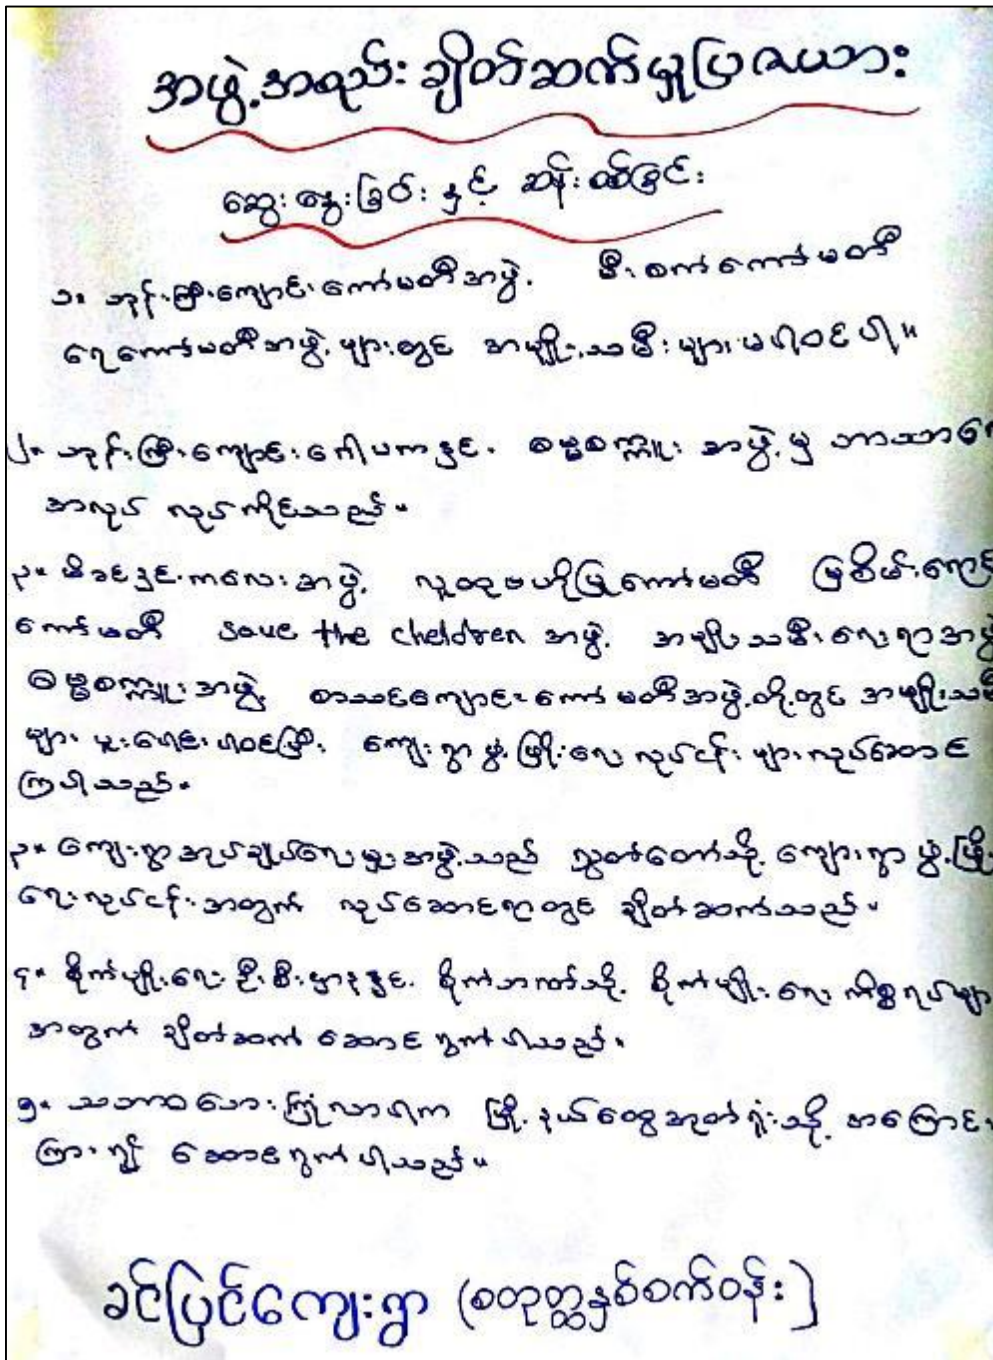 အဖွဲ့အစည်းချိတ်ဆက်မှုပြဇယား
ဆွေးနွေးခြင်းနှင့် ဆန်းစစ်ခြင်း
၁။ ဘုန်းကြီးကျောင်းကော်မတီအဖွဲ့၊ မီးစက်ကော်မတီ
ရေကော်မတီအဖွဲ့များတွင် အမျိုးသမီးများမပါဝင်ပါ။
၂။ ဘုန်းကြီးကျောင်းဂေါပကနှင့် ဓမ္မစကြူး အဖွဲ့မှ ဘာသာရေ
အလုပ် လုပ်ကိုင်သည်။
၃။ မိခင်နှင့်ကလေးအဖွဲ့ လူထုဗဟိုပြုကော်မတီ မြစိမ်းရောင်
ကော်မတီ save the cheldren အဖွဲ့ အမျိုးသမီးရေးရာအဖွဲ့
ဓမ္မစကြူးအဖွဲ့ စာသင်ကျောင်းကော်မတီအဖွဲ့တို့တွင် အမျိုးသမီ
များ ပူးပေါင်းပါဝင်ပြီး ကျေးရွာဖွံ့ဖြိုးရေးလုပ်ငန်းများလုပ်ဆောင်
ကြပါသည်။
၃။ ကျေးရွာအုပ်ချုပ်ရေးမှူးအဖွဲ့သည် လွှတ်တော်သို့ ကျေးရွာဖွံ့ဖြိုး
ရေးလုပ်ငန်းအတွက် လုပ်ဆောင်ရာတွင် ချိတ်ဆက်သည်။
၄။ စိုက်ပျိုးရေးဦးစီးဌာနနှင့် စိုက်ဘဏ်သို့ စိုက်ပျိုးရေးကိစ္စရပ်များ
အတွက် ချိတ်ဆက် ဆောင်ရွက်ပါသည်။
၅။ သဘာဝဘေးကြုံလာပါက မြို့နယ်ထွေအုတ်ရုံးသို့ အကြောင်း
ကြား၍ ဆောင်ရွက်ပါသည်။
ခင်ပြင်ကျေးရွာ (စတုတ္ထနှစ်စက်ဝန်း)